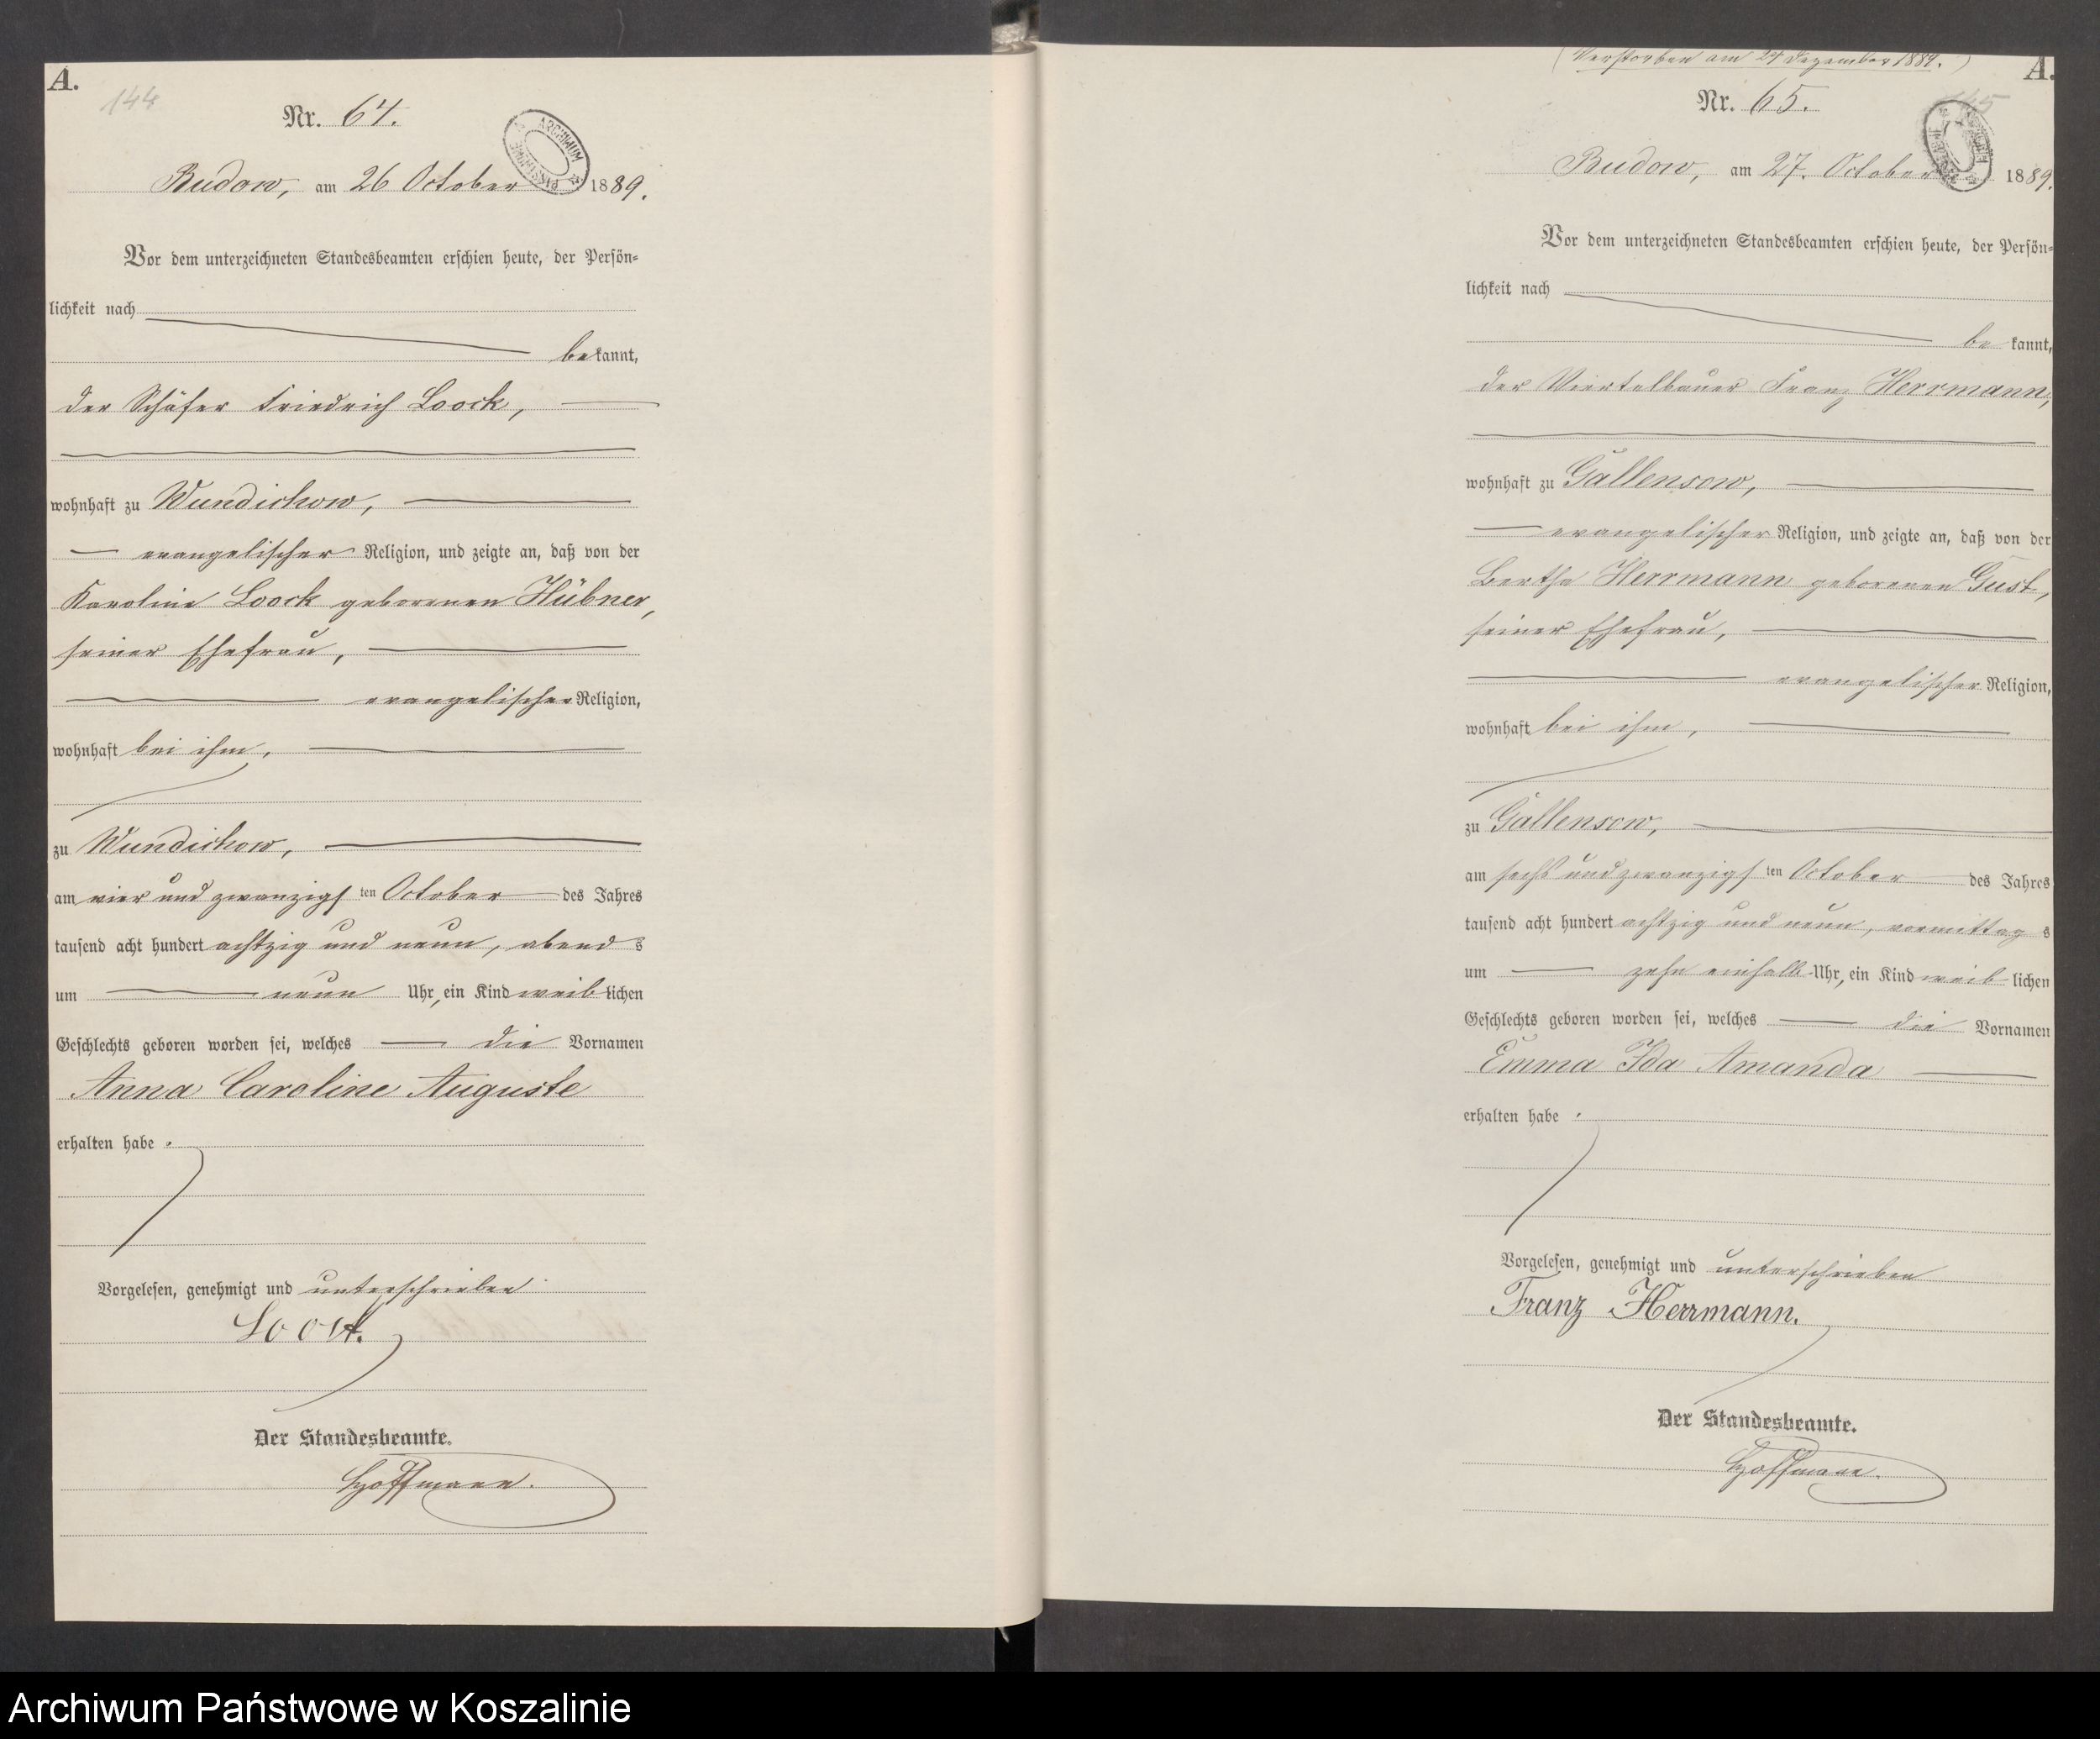 A.
144
Nr. 64.
ARCHIWUM PAŃSTWOWE
Budow, am 26 October 1889.
Vor dem unterzeichneten Standesbeamten erschien heute, der Persön=
lichkeit nach
bekannt,
der Schäfer Friedrich Loock,
wohnhaft zu Wundichow,
evangelischer Religion, und zeigte an, daß von der
Karoline Loock geborenen Hübner,
seiner Ehefrau,
evangelischer Religion,
wohnhaft bei ihm,
zu Wundichow,
am vier und zwanzigsten October des Jahres
tausend acht hundert achtzig und neun, abends
um neun Uhr, ein Kind weiblichen
Geschlechts geboren worden sei, welches die Vornamen
Anna Caroline Auguste
erhalten habe.
Vorgelesen, genehmigt und unterschrieben
Loock.
Der Standesbeamte.
Hoffmann.
(Verstorben am 24 Dezember 1889.)
A.
Nr. 65.
Budow, am 27. October 1889.
Vor dem unterzeichneten Standesbeamten erschien heute, der Persön=
lichkeit nach
bekannt,
der Viertelbauer Franz Herrmann,
wohnhaft zu Gallensow,
evangelischer Religion, und zeigte an, daß von der
Bertha Herrmann geborenen Gust,
seiner Ehefrau,
evangelischer Religion,
wohnhaft bei ihm,
zu Gallensow,
am sechs und zwanzigsten October des Jahres
tausend acht hundert achtzig und neun, vormittags
um zehn einhalb Uhr, ein Kind weiblichen
Geschlechts geboren worden sei, welches die Vornamen
Emma Ida Amanda
erhalten habe.
Vorgelesen, genehmigt und unterschrieben
Franz Herrmann.
Der Standesbeamte.
Hoffmann.
Archiwum Państwowe w Koszalinie